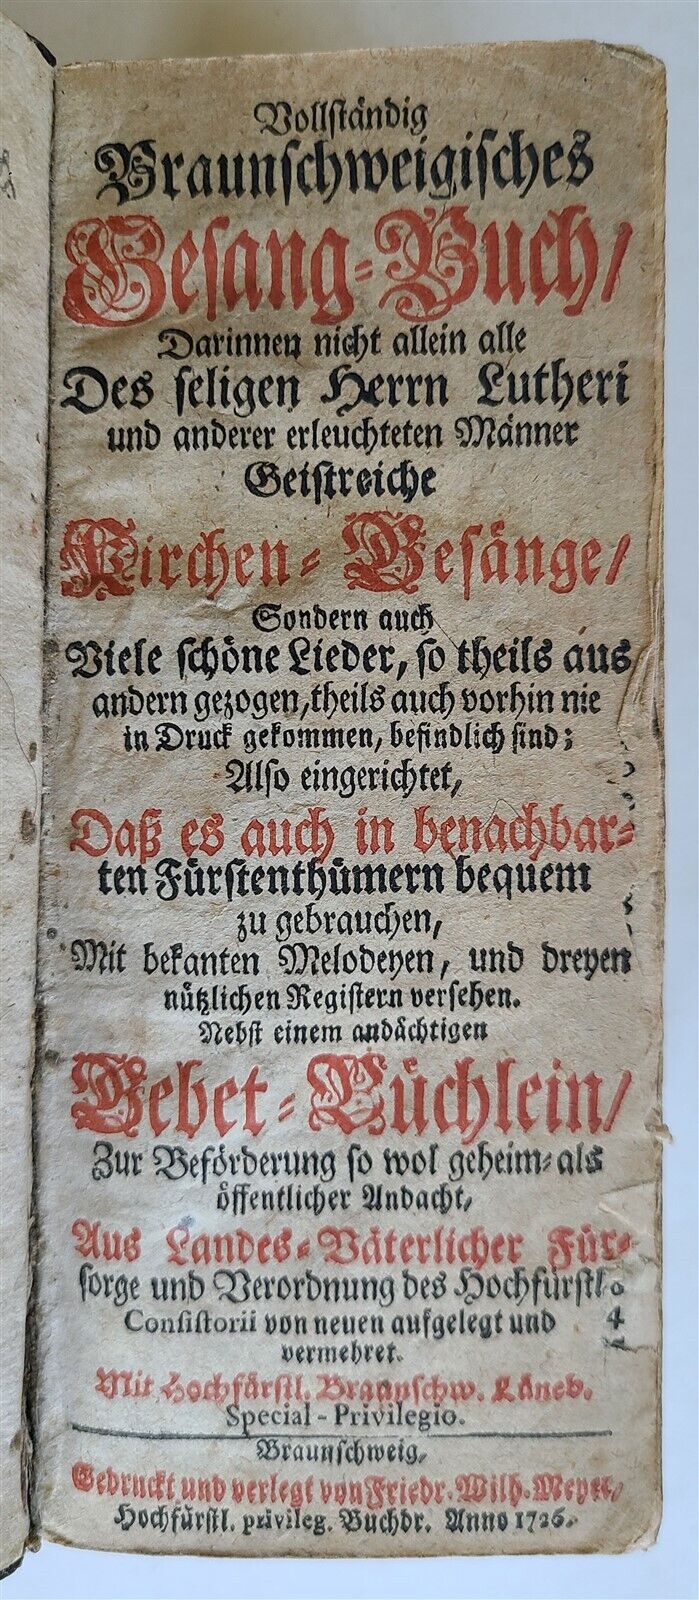 Vollständig
Braunschweigisches
Gesang-Buch/
Darinnen nicht allein alle
Des seligen Herrn Lutheri
und anderer erleuchteten Männer
Geistreiche
Kirchen-Gesänge/
Sondern auch
Viele schöne Lieder, so theils aus
andern gezogen, theils auch vorhin nie
in Druck gekommen, befindlich sind;
Also eingerichtet,
Daß es auch in benachbar-
ten Fürstenthümern bequem
zu gebrauchen,
Mit bekanten Melodeyen, und dreyen
nützlichen Registern versehen.
Nebst einem andächtigen
Gebet-Büchlein/
Zur Beförderung so wol geheim-als
öffentlicher Andacht,
Aus Landes-Väterlicher Für-
sorge und Verordnung des Hochfürstl.
Consistorii von neuen aufgelegt und
vermehret.
Mit Hochfürstl. Braunschw. Lüneb.
Special-Privilegio.
Braunschweig,
Gedruckt und verlegt von Friedr. Wilh. Meyer,
Hochfürstl. privileg. Buchdr. Anno 1726.